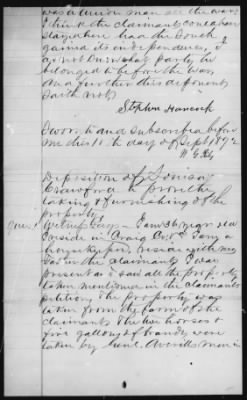 was a Union man all the war,
I think the claimant could have
stayed here had the South
gained its independence, I
do not know what party he
belonged to before the War,
And further this deponent
saith not,
Stephen Hancock
Sworn to and subscribed before
me this 11th day of Sept 1872
Deposition of Louisa
Crawford to prove the
taking & furnishing of the
property
Ques 1 Witness Says I am 36 years old
reside in Craig Co Va I am a
housekeeper, reside with my
Father the claimant, I was
present & I saw all the property
taken mentioned in the claimants
petition, The property was
taken from the farm of the
claimants The two horses &
five gallons of brandy were
taken by Genl Averills men in